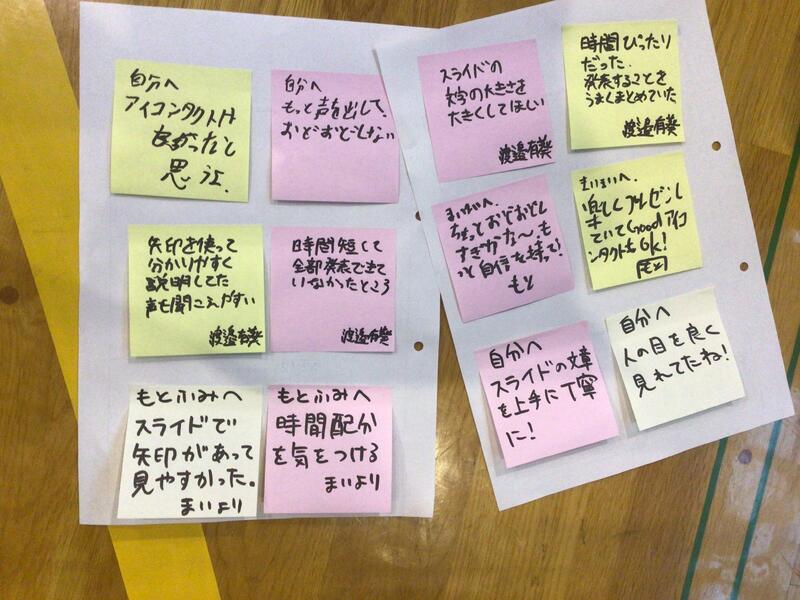 自分へ
アイコンタクトは
良かったと
思うよ.
自分へ
もっと声を出して、
おどおどしない
矢印を使って
分かりやすく
説明してた
声も聞こえやすい
渡邉有葵
時間短くて
全部発表できて
いなかたところ
渡邉有葵
もとふみへ
スライドで
矢印があって
見やすかった。
まいより
もとふみへ
時間配分
を気をつける
まいより
スライドの
文字の大きさを
大きくしてほしい
渡邉有葵
時間ぴったり
だった.
発表することを
うまくまとめていた
渡邉有葵
まいまいへ
ちょっとおどおどし
すぎかな〜.も
っと自信を持って!
もと
まいまいへ.
楽しくプレゼンし
ていてGoodアイコ
ンタクトもGK!
もと
自分へ
スライドの文章
を上手に丁寧
に!
自分へ
人の目を良く
見れてたね!